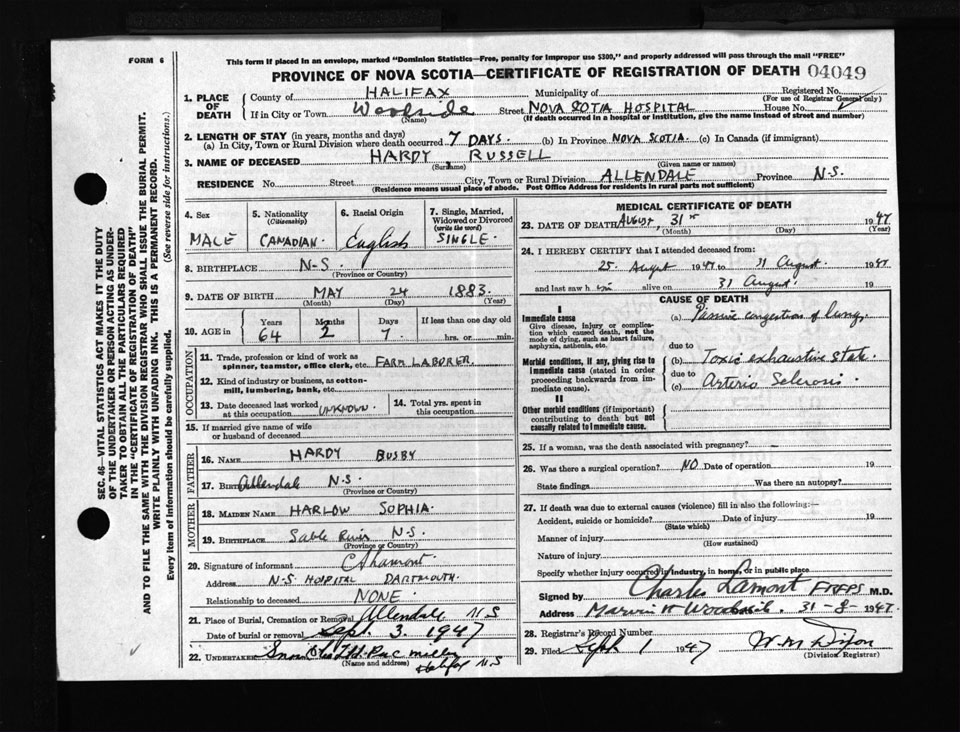 FORM 6
This form if placed in an envelope, marked "Dominion Statistics—Free, penalty for improper use $300," and properly addressed will pass through the mail "FREE"
PROVINCE OF NOVA SCOTIA—CERTIFICATE OF REGISTRATION OF DEATH 04049
1. PLACE OF DEATH
County of HALIFAX Municipality of Registered No.
(For use of Registrar General only)
If in City or Town Woodside Street NOVA SCOTIA HOSPITAL House No.
(Name) (If death occurred in a hospital or institution, give the name instead of street and number)
2. LENGTH OF STAY (in years, months and days)
(a) In City, Town or Rural Division where death occurred 7 DAYS. (b) In Province NOVA SCOTIA. (c) In Canada (if immigrant)
3. NAME OF DECEASED HARDY, RUSSELL
(Surname) (Given name or names)
RESIDENCE No. Street City, Town or Rural Division ALLENDALE Province N.S.
(Residence means usual place of abode. Post Office Address for residents in rural parts not sufficient)
4. Sex MALE
5. Nationality (Citizenship) CANADIAN.
6. Racial Origin English
7. Single, Married, Widowed or Divorced (write the word) SINGLE.
8. BIRTHPLACE N-S.
(Province or Country)
9. DATE OF BIRTH MAY 24 1883.
(Month) (Day) (Year)
10. AGE in Years Months Days If less than one day old
64 2 7. hrs. or min.
OCCUPATION
11. Trade, profession or kind of work as spinner, teamster, office clerk, etc. FARM LABORER.
12. Kind of industry or business, as cotton-mill, lumbering, bank, etc.
13. Date deceased last worked at this occupation UNKNOWN
14. Total yrs. spent in this occupation
15. If married give name of wife or husband of deceased
FATHER
16. NAME HARDY BUSBY
17. BIRTH Allendale N.S.
(Province or Country)
MOTHER
18. MAIDEN NAME HARLOW SOPHIA.
19. BIRTHPLACE Sable River N.S.
(Province or Country)
20. Signature of informant C Lamont.
Address N.S. HOSPITAL DARTMOUTH.
Relationship to deceased NONE.
21. Place of Burial, Cremation or Removal Allendale N S
Date of burial or removal Sept. 3. 1947
22. UNDERTAKER Snow
(Name and address) Halifax N.S
MEDICAL CERTIFICATE OF DEATH
23. DATE OF DEATH AUGUST, 31 1947
(Month) (Day) (Year)
24. I HEREBY CERTIFY that I attended deceased from:
25. August 1947 to 31 August 1947
and last saw h im alive on 31 August. 19
CAUSE OF DEATH
I
Immediate cause
Give disease, injury or complication which caused death, not the mode of dying, such as heart failure, asphyxia, asthenia, etc.
(a) Passive congestion of lungs
due to
Morbid conditions, if any, giving rise to immediate cause (stated in order proceeding backwards from immediate cause).
(b) Toxic exhaustive state.
due to
(c) Arterio Sclerosis
II
Other morbid conditions (if important) contributing to death but not causally related to immediate cause.
25. If a woman, was the death associated with pregnancy?
26. Was there a surgical operation? NO Date of operation 19
State findings Was there an autopsy?
27. If death was due to external causes (violence) fill in also the following:—
Accident, suicide or homicide? Date of injury 19
(State which)
Manner of injury
(How sustained)
Nature of injury
Specify whether injury occurred in industry, in home, or in public place
Signed by Charles Lamont M.D.
Address 31 - 8 - 1947.
28. Registrar's Record Number
29. Filed Sept 1 1947 W. M. Dixon
(Division Registrar)
SEC. 46—VITAL STATISTICS ACT MAKES IT THE DUTY
OF THE UNDERTAKER OR PERSON ACTING AS UNDER-
TAKER TO OBTAIN ALL THE PARTICULARS REQUIRED
IN THE "CERTIFICATE OF REGISTRATION OF DEATH"
AND TO FILE THE SAME WITH THE DIVISION REGISTRAR WHO SHALL ISSUE THE BURIAL PERMIT.
WRITE PLAINLY WITH UNFADING INK. THIS IS A PERMANENT RECORD.
Every item of information should be carefully supplied. (See reverse side for instructions.)